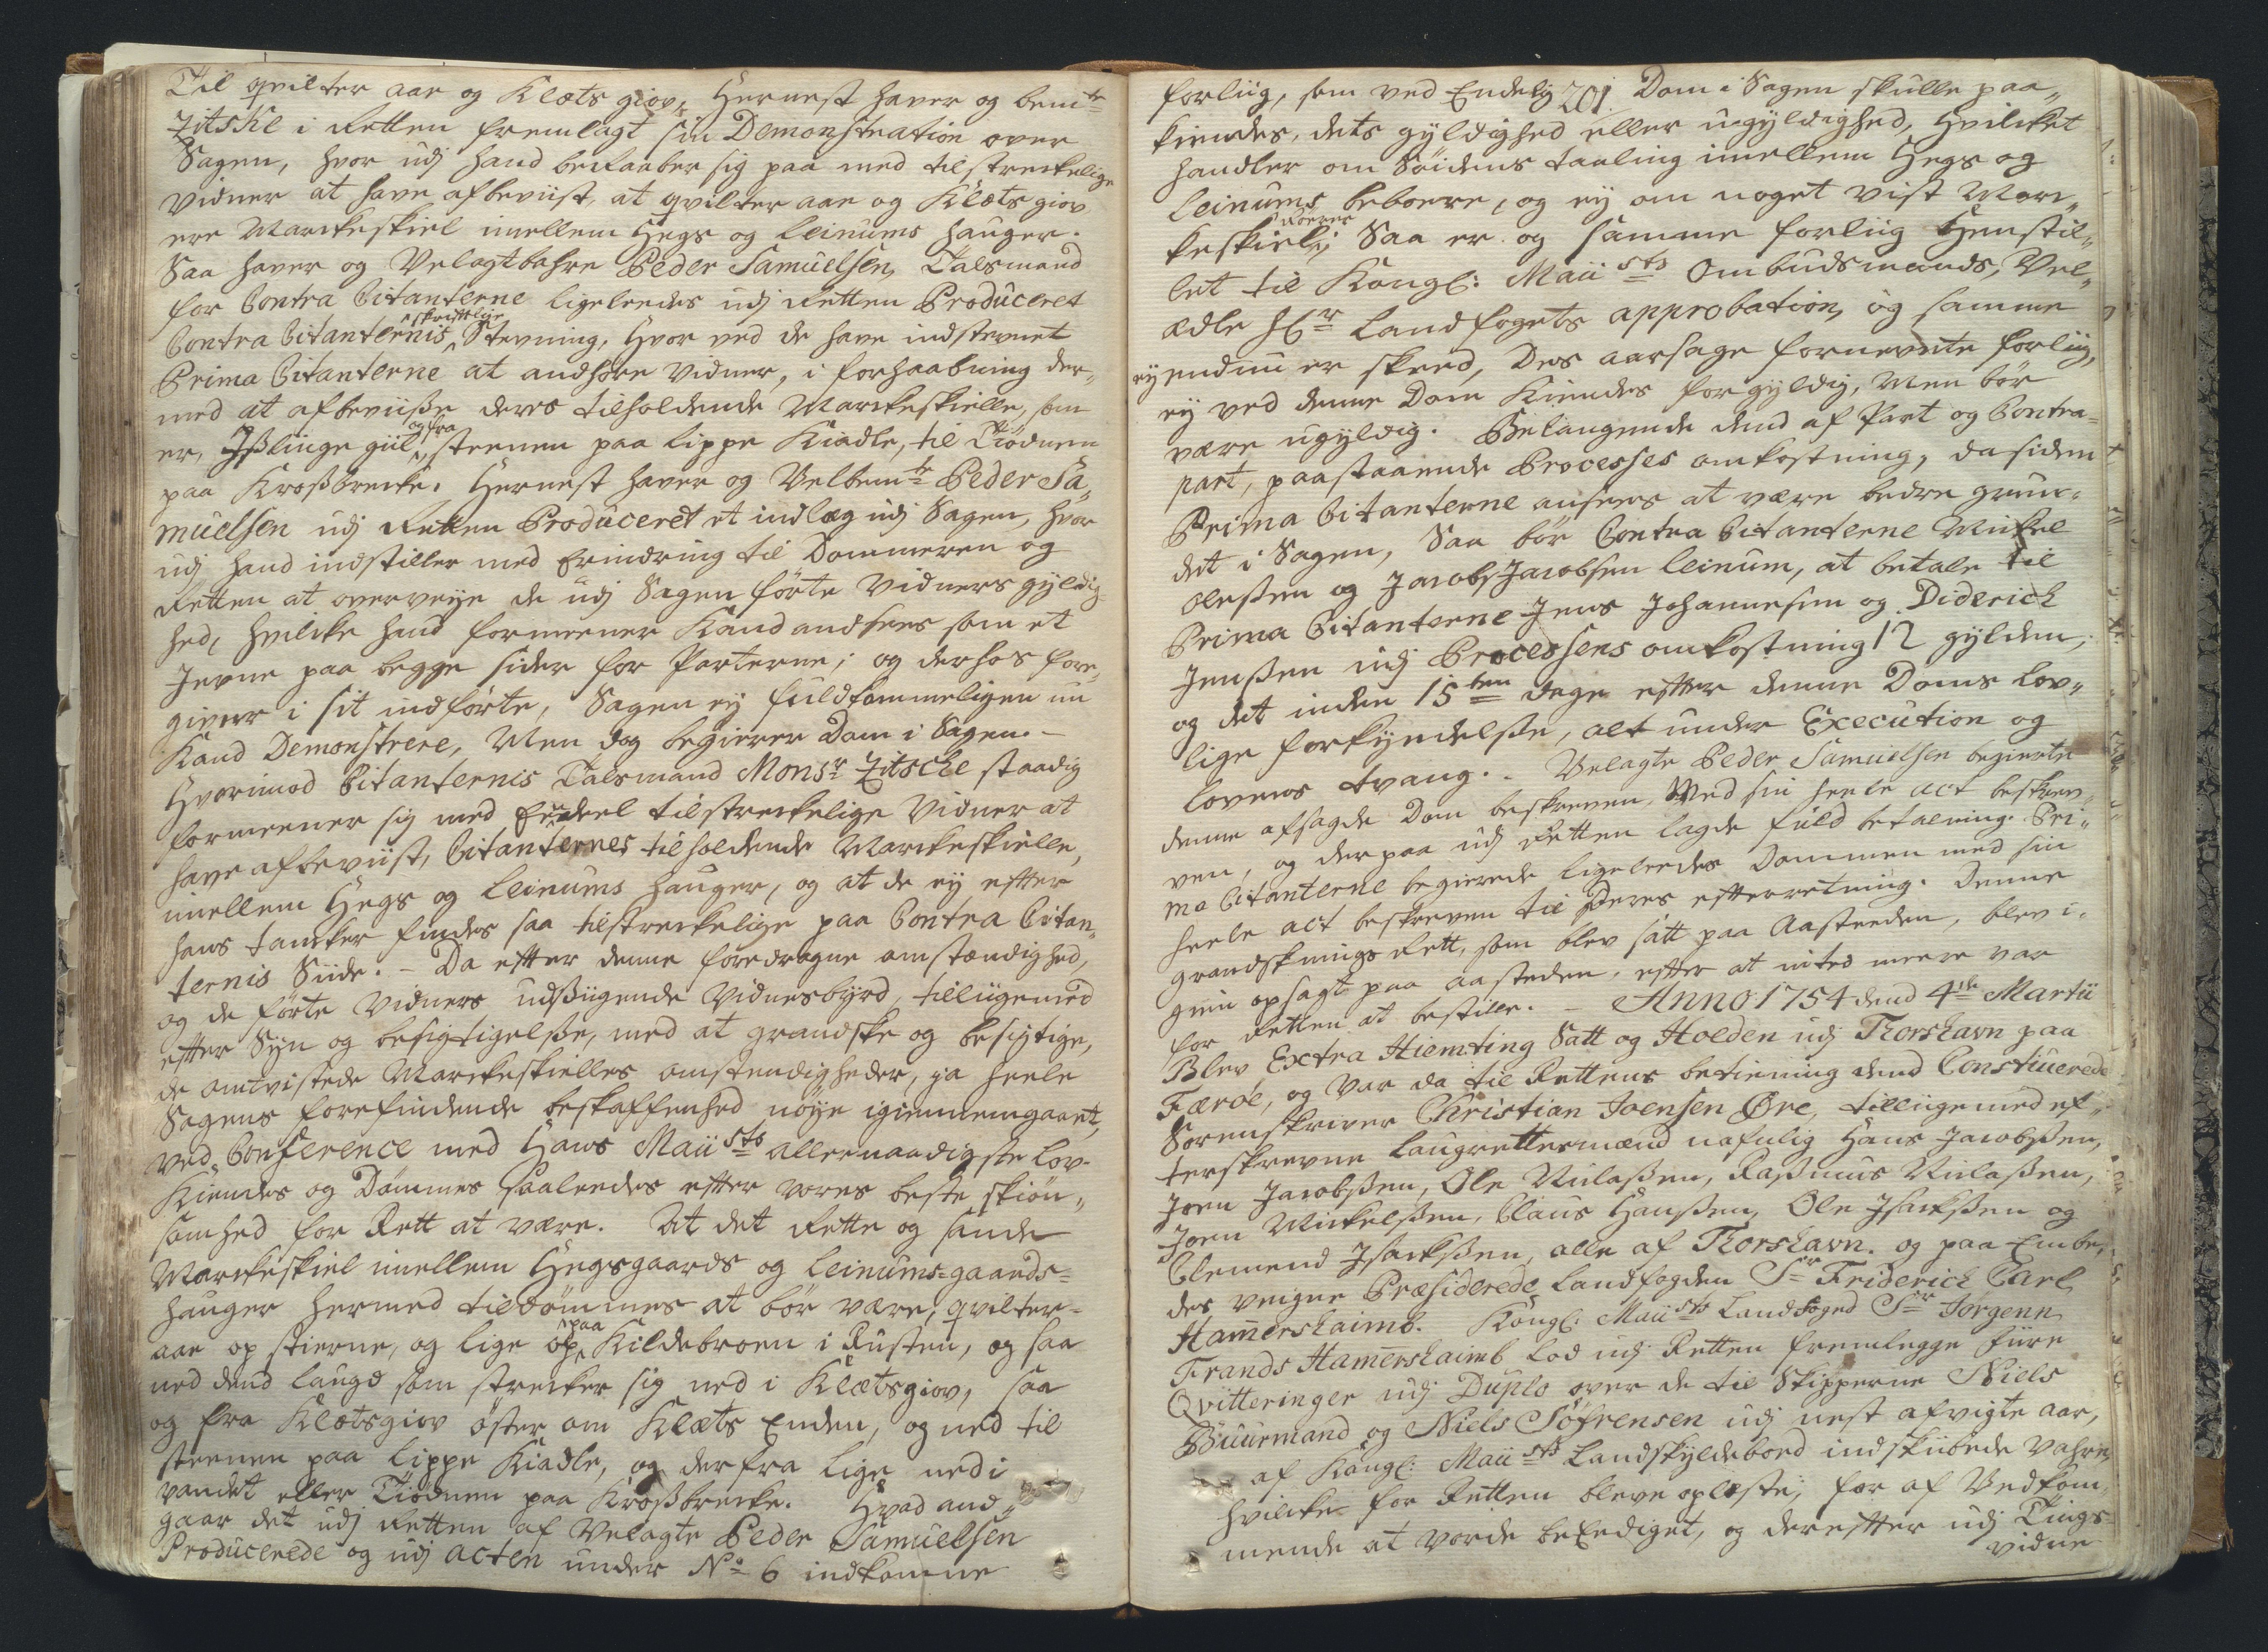 Til qvilter aar og Klæts giov, Hernest haver og bem.te
Zitske i Retten fremlagt sin Demonstration over
Sagen, hvor udj hand beraaber sig paa med tilstreckelige
Vidner at have afbeviist, at qvilter aar og Klæts giov
ere Marckeskiel imellem Hegs og Leinums hauger.
Saa haver og Velagtbahre Peder Samuelsen, Talsmand
for Contra Citanterne ligeleedes udj Retten Produceret
Contra Citanternis skriftlige Stevning, hvor ved de have indstevnet
Prima Citanterne at andhøre Vidner, i forhaabning der„
med at afbeviisse deres tilholdende Marckeskielle, som
er, Isslinge giil og fra steenen paa Lippe Kiadle, til Tiødnen
paa Krossbrecke. Hernest haver og Velbem.te Peder Sa„
muelsen udj Retten Produceret et indlæg udj Sagen, hvor
udj hand indstiller med Erindring til Dommeren og
Retten at overveye de udj Sagen førte Vidners gyldig„
hed, hvilcke hand formeener Kand andsees som et
Jevne paa begge sider for Parterne; og derhos fore„
giver i sit indførte, Sagen ey fuldkommeligen nu
Kand Demonstrere, Men dog begierer Dom i Sagen. –
Hvorimod Citanternis Talsmand Mons.r Zitsche staadig
formeener sig med Eendeel tilstreckelige Vidner at
have afbeviist, Citanternes tilholdende Marckeskielle,
imellem Hegs og Leinums hauger, og at de ey efter
hans tancker findes saa tilstreckelige paa Contra Citan„
ternis Side. – Da efter denne foredragne omstændighed,
og de førte Vidners udsigende Vidnesbyrd, tilligemed
efter Syn og besigtigelsse, med at grandske og besigtige,
de omtvistede Marckeskielles omstendigheder, ja heele
Sagens forefindende beskaffenhed nøye igiennemgaaet,
ved Conference med Hans Maii.sts allernaadigste Lov.
Kiendes og Dømmes saaleedes efter vores beste skiøn„
somhed for Rett at være. At det Rette og sande
Marckeskiel imellem Hegsgaards og Leinums=gaards=
hauger hermed tildømmes at bør være, qvilter=
aar op stierne, og lige op paa Kildebroen i Rusten, og saa
ned dend laugd som strecker sig ned i Klætsgiov, saa
og fra Klætsgiov øster om Klæts Enden, og ned til
steenen paa Lippe Kiadle, og derfra lige ned i
vandet eller Tiødnen paa Krossbrecke. Hvad and„
gaar det udj Retten af Velagte Peder Samuelsen
Producerede og udj acten under No 6 indkomne
201.
forliig, som ved Endelig Dom i Sagen skulle paa„
kiendes, dets gyldighed eller ugyldighed, hvilcket
handler om Søidens taaling imellem Hegs og
Leinums beboere, og ey om noget vist Marc„
keskiel; Saa er og samme forliig henstil„
let til Kongl: Maii.sts Ombudsmands, Vel„
ædle H.r Landfogets approbation, og samme
ey endnu er skeed, Des aarsage fornevnte forliig,
ey ved denne Dom Kiendes for gyldig, Men bør
være ugyldig. Belangende dend af Part og Contra=
part, paastaaende Processes omkostning, da siden
Prima Citanterne ansees at være bedre grun„
det i Sagen, Saa bør Contra Citanterne Mickel
Olessen og Jacob Jacobsen Leinum, at betale til
Prima Citanterne Jens Johannesen og Diderich
Jenssen udj Processens omkostning 12 gylden,
og det inden 15.ten dage efter denne Doms Lov„
lige forkyndelsse, alt under Execution og
Lovens tvang. – Velagte Peder Samuelsen begierte
denne afsagde Dom beskreven, Med sin heele act beskre„
ven, og derpaa udj Retten lagde fuld betalning. Pri„
ma Citanterne begierede ligeleedes Dommen med sin
heele act beskreven til Deres efterretning. Denne
grandsknings Rett, som blev satt paa Aasteeden, blev i„
gien opsagt paa aasteden, efter at inted meere var
for Retten at bestille. – Anno 1754 dend 4.de Martii
Blev Extra Hiemting Satt og Holden udj Thorshavn paa
Færøe, og var da til Rettens betiening dend Constituerede
Sorenskriver Christian Joensen Øre, tilligemed ef„
terskrevne Laugrettesmænd nafnlig Hans Jacobssen,
Joen Jacobssen, Ole Niclassen, Rassmus Niclassen,
Joen Mickelssen, Claus Hanssen, Ole Isackssen og
Clemend Isackssen, alle af Thorshavn. og paa Embe„
des veigne Præsiderede Landfogden S.r Friderich Carl
Hamershaimb. Kongl: Maii.sts Landfoged S.r Jørgenn
Frands Hamershaimb lod udj Retten fremlegge fiire
Qvitteringer udj Duplo over de til Skipperne Niels
Buurmand og Niels Søfrensen udj nest afvigte aar,
af Kongl: Maii.sts Landskyldebord indskibede Vahre,
hvilcke for Retten bleve oplæste; for af Vedkom„
mende at vorde beEediget, og derefter udj Tings
vidne